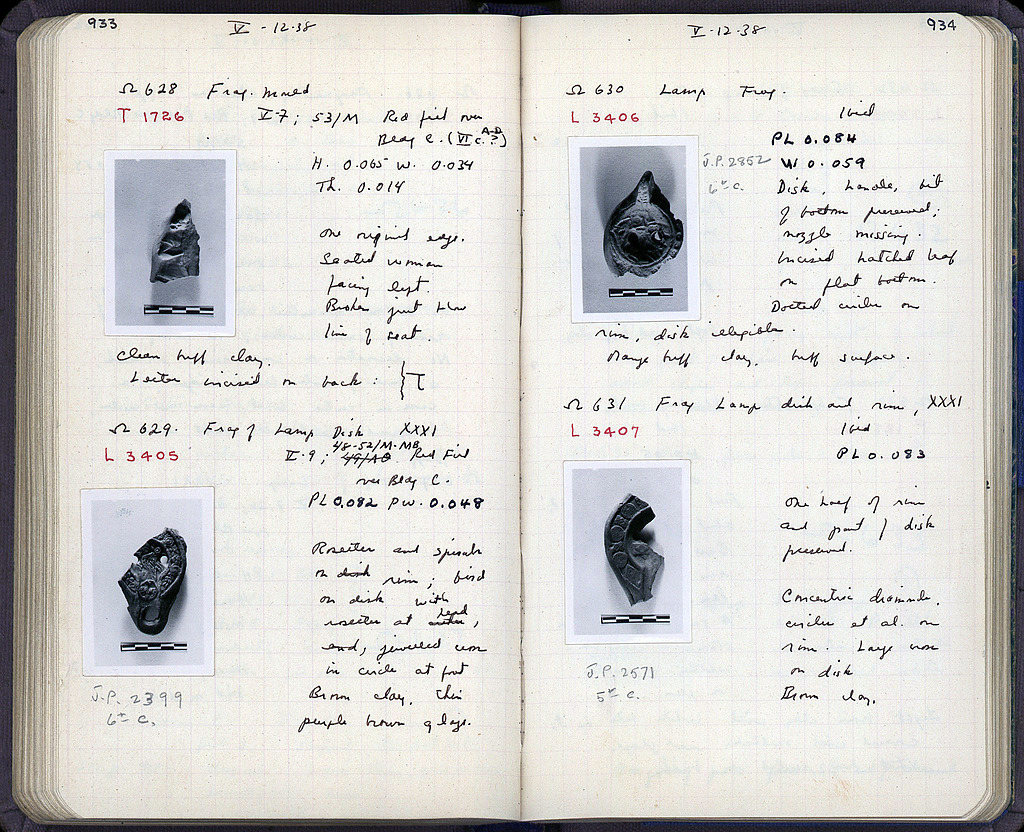 933
V - 12·38
Ω 628 Frag. Mould
T 1726
V-7; 53/M Red fill over
Bldg C. (VI c. A.D.?)
H. 0.065 W. 0.034
Th. 0.014
One original edge.
Seated woman
facing left.
Broken just below
line of seat.
Clean buff clay.
Letter incised on back: T
Ω 629. Frag of Lamp Disk XXXI
L 3405
V-9; 48-52/M-MB Red Fill
49/AO
over Bldg C.
PL 0.082 PW. 0.048
Rosettes and spirals
on disk rim; bird
on disk with
rosettes at head,
end, jewelled cross
in circle at foot
Brown clay. Thin
purple brown glaze.
J.P. 2399
6th C.
934
V-12·38
Ω 630 Lamp Frag.
L 3406
Ibid
PL 0.084
J.P. 2852 W 0.059
6th C.
Disk, handle, bit
of bottom preserved;
nozzle missing.
Incised hatched leaf
on flat bottom.
Dotted circles on
rim, disk illegible.
Orange buff clay, buff surface.
Ω 631 Frag Lamp disk and rim, XXXI
L 3407
Ibid
PL 0.083
One half of rim
and part of disk
preserved.
Concentric diamonds,
circles et al. on
rim. Large cross
on disk
Brown clay.
J.P. 2571
5th C.